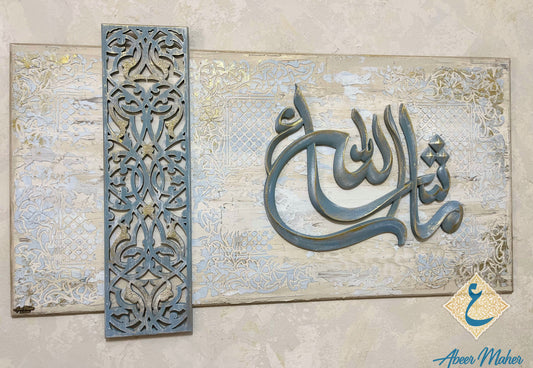 ما شاء الله
ع
Abeer Maher